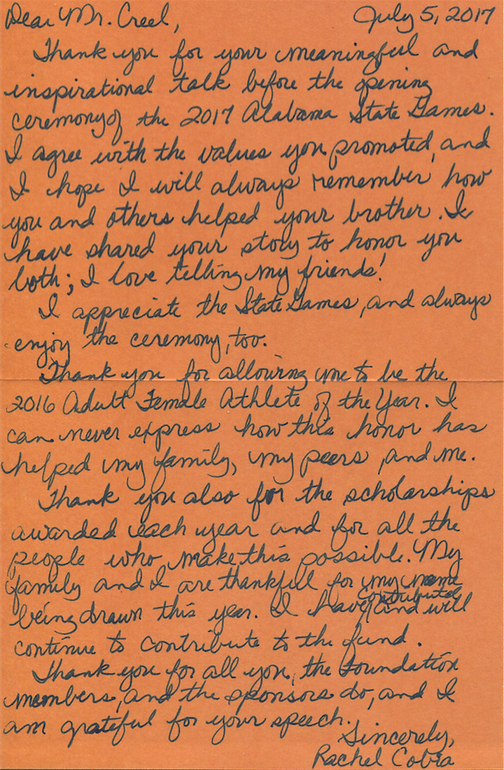 Dear Mr. Creel, July 5, 2017
Thank you for your meaningful and
inspirational talk before the opening
ceremony of the 2017 Alabama State Games.
I agree with the values you promoted, and
I hope I will always remember how
you and others helped your brother. I
have shared your story to honor you
both; I love telling my friends!
I appreciate the State Games, and always
enjoy the ceremony, too.
Thank you for allowing me to be the
2016 Adult Female Athlete of the Year. I
can never express how this honor has
helped my family, my peers, and me.
Thank you also for the scholarships
awarded each year and for all the
people who make this possible. My
family and I are thankful for my name
being drawn this year. I have contributed and will
continue to contribute to the fund.
Thank you for all you, the Foundation
members, and the sponsors do, and I
am grateful for your speech.
Sincerely,
Rachel Cobia